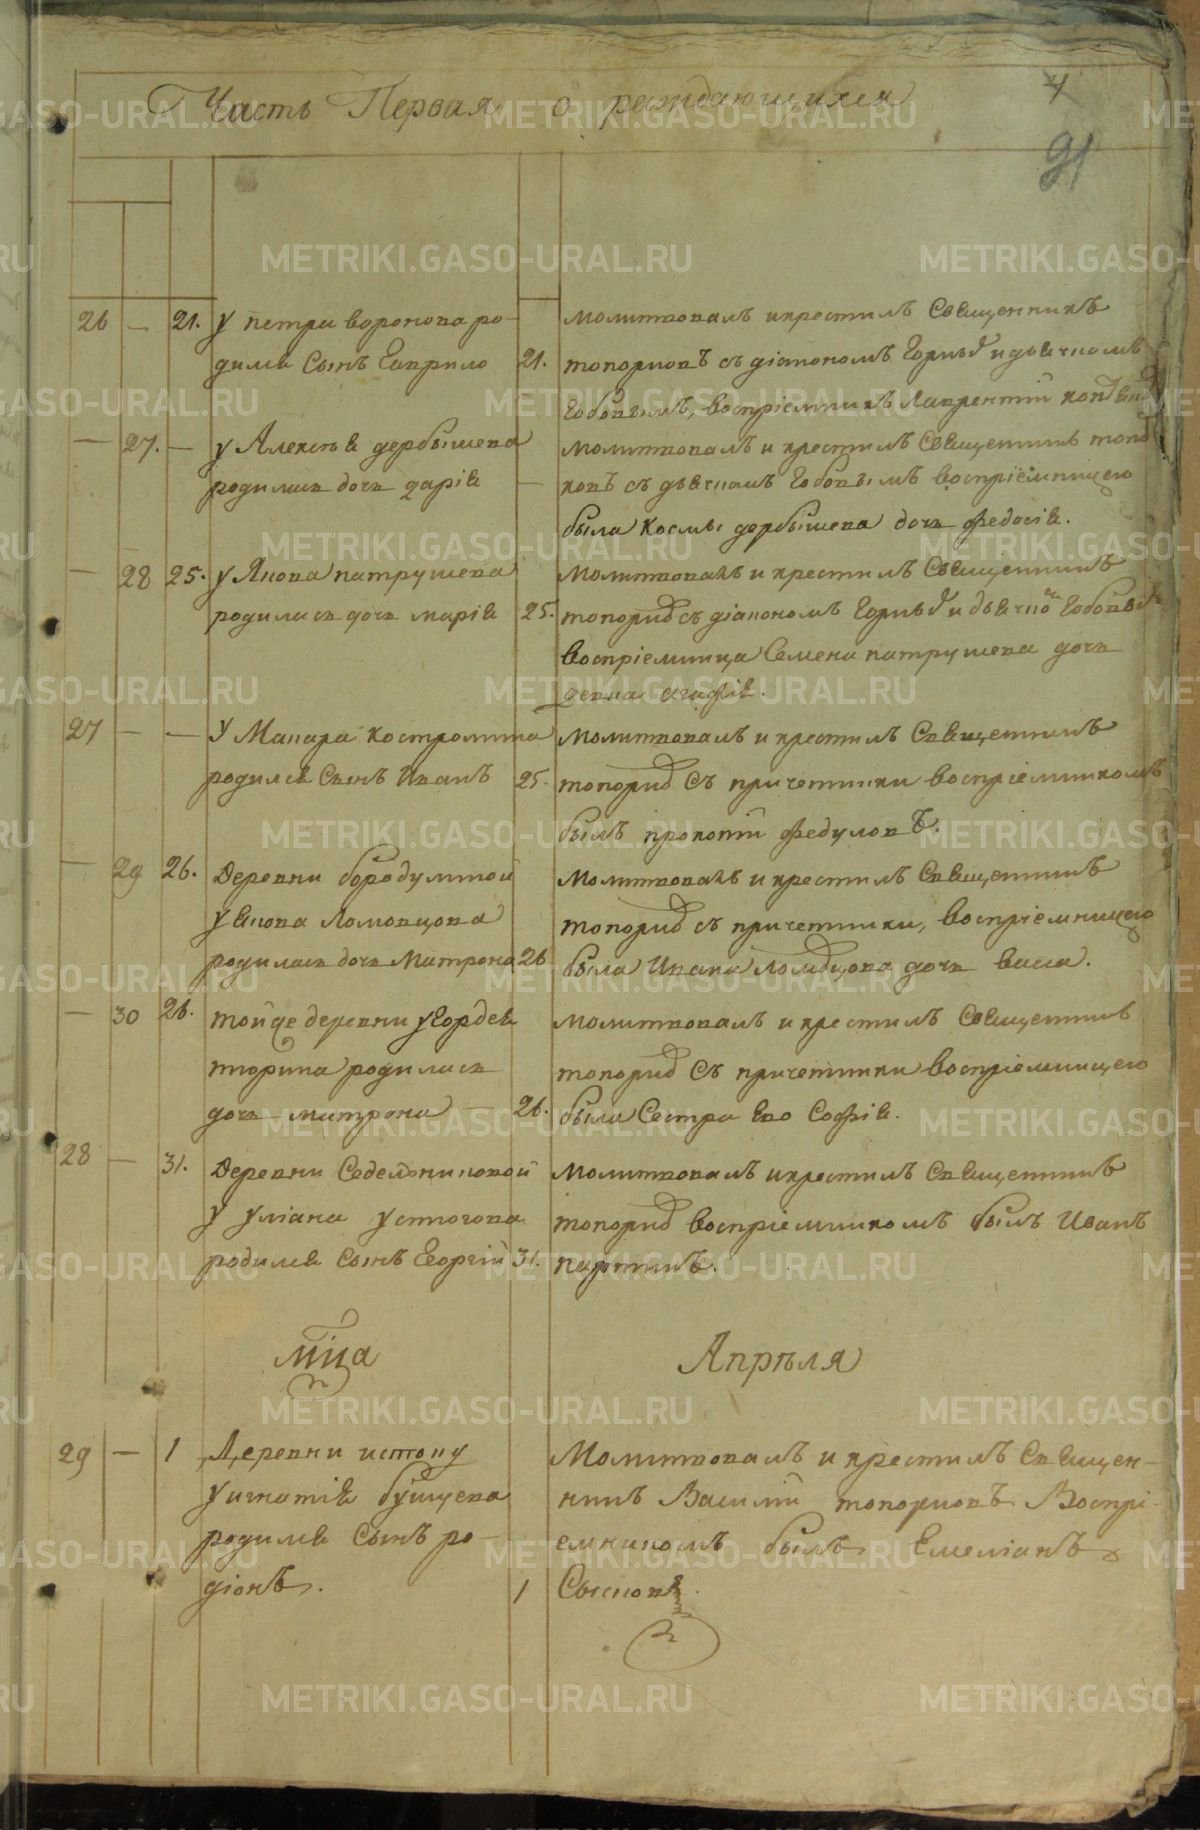 Часть Первая о раждающихся
4
91
26 — 21. у петра воронова ро-
дился Сынъ Гаврило 21.
молитвовалъ и крестилъ Священникъ
топорковъ съ діакономъ и дьячкомъ
воспріемникъ Лаврентий
— 27. — у Алексѣя дербышева
родилась дочь дарія —
молитвовалъ и крестилъ Священникъ топор
ковъ съ дьячкомъ воспріемницею
была Космы дербышева дочь федосія.
— 28 25. у Якова патрушева
родилась дочь марія 25.
молитвовалъ и крестилъ Священникъ
топорков съ діакономъ и дьячко
воспріемница Семена патрушева дочь
девка агафія.
27 — — у Макара костромина
родился Сынъ Иванъ 25.
молитвовалъ и крестилъ Священникъ
топорков Съ причетники воспріемникомъ
былъ прокопій федуловъ.
— 29 26. Деревни бородулиной
у якова Ломовцова
родилась дочь Матрона 26
молитвовалъ и крестилъ Священникъ
топорков съ причетники, воспріемницею
была Ивана Ломовцова дочь васса.
— 30 26. той де деревни у Гордея
тюрина родилась
дочь матрона — 26.
молитвовалъ и крестилъ Священникъ
топорков Съ причетники воспріемницею
была Сестра Ево Софія.
28 — 31. Деревни Седельниковой
у уліана устюгова
родился Сынъ Георгій 31.
молитвовалъ и крестилъ Священникъ
топорков воспріемникомъ былъ Иванъ
паршинъ.
мца Апрѣля
29 — 1 Деревни истоку
у игнатія
родился Сынъ ро-
діонъ. 1
Молитвовалъ и крестилъ Священ-
никъ Василій топорковъ Воспрі-
емникомъ былъ Емеліанъ
METRIKI.GASO-URAL.RU